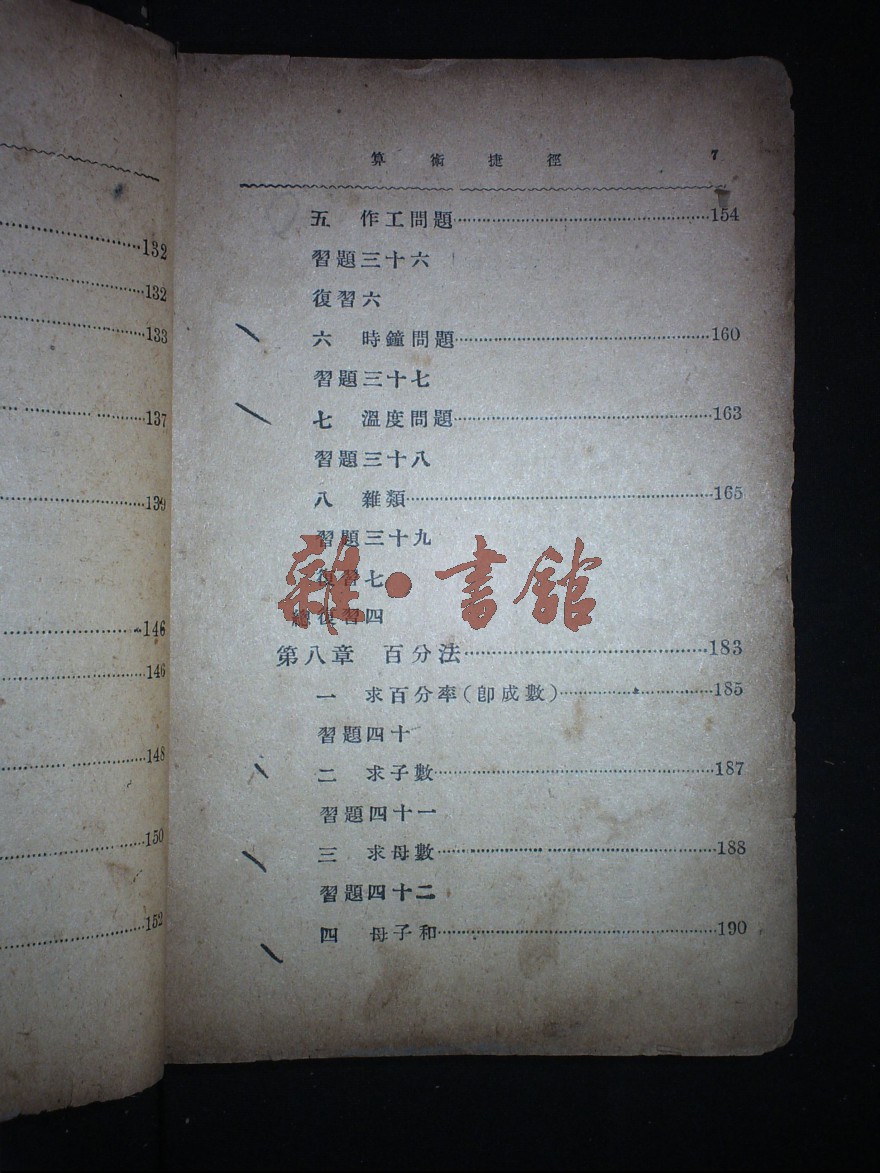 132
132
133
137
139
146
146
148
150
152
算術捷徑 7
五 作工問題 154
習題三十六
復習六
六 時鐘問題 160
習題三十七
七 溫度問題 163
習題三十八
八 雜類 165
習題三十九
復習七
總復習四
雜·書館
第八章 百分法 183
一 求百分率(卽成數) 185
習題四十
二 求子數 187
習題四十一
三 求母數 188
習題四十二
四 母子和 190